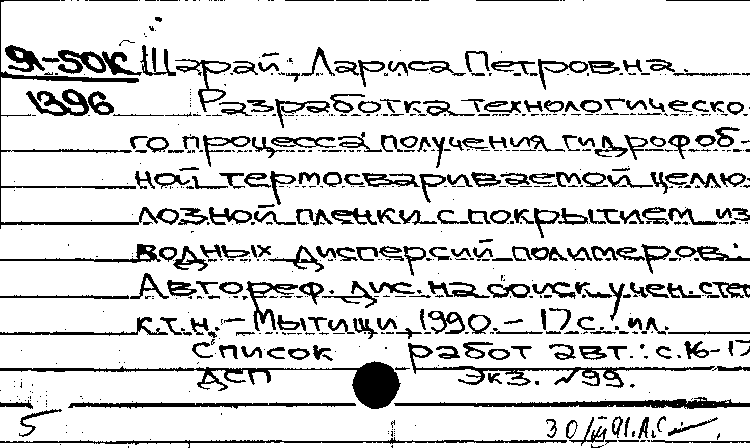 91-50К Шарай, Лариса Петровна.
1396 Разработка технологическо-
го процесса получения гидрофоб-
ной термосвариваемой целлю-
лозной пленки с покрытием из
водных дисперсий полимеров:
Автореф. дис. на соиск. учен. степ.
к.т.н. – Мытищи, 1990. – 17 с.: ил.
Список работ авт.: с. 16-17
ДСП Экз. №99.
5 30/III 91.